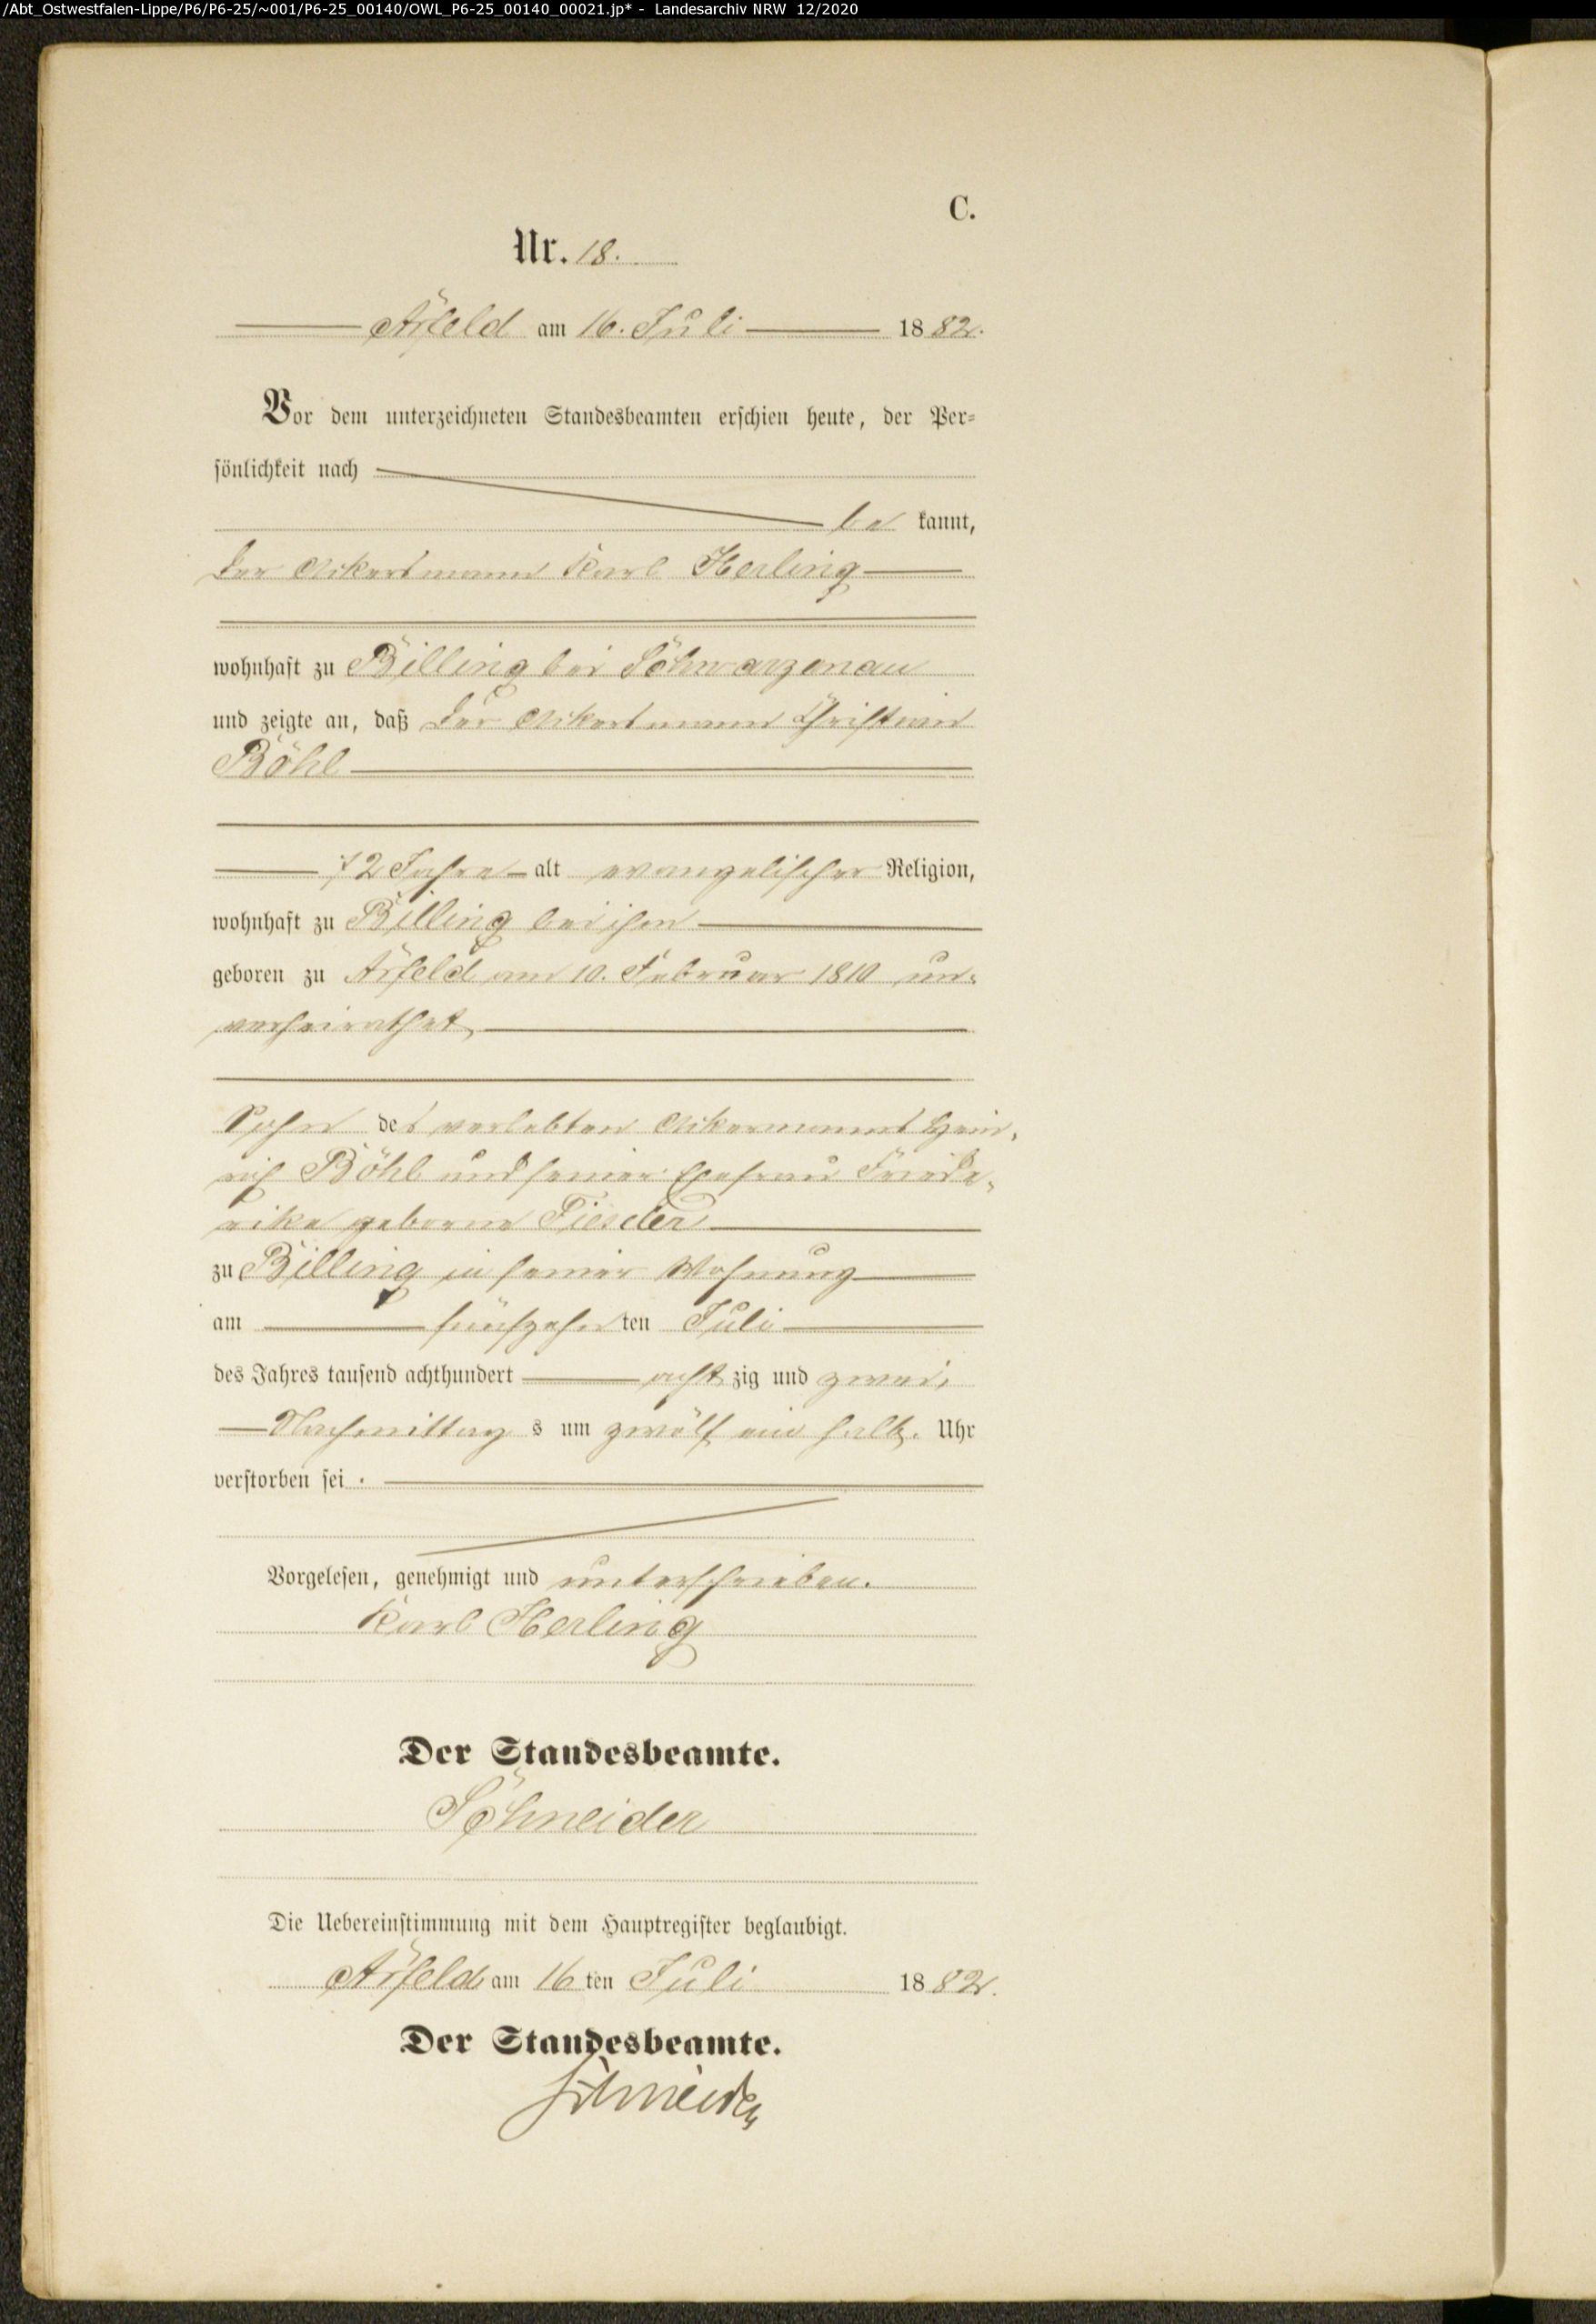 /Abt_Ostwestfalen-Lippe/P6/P6-25/~001/P6-25_00140/OWL_P6-25_00140_00021.jp* - Landesarchiv NRW 12/2020
C.
Nr. 18.
Arfeld am 16. Juli 1882.
Vor dem unterzeichneten Standesbeamten erschien heute, der Per-
sönlichkeit nach
be kannt,
der Ackersmann Karl Herling
wohnhaft zu Billing bei Schwarzenau
und zeigte an, daß der Ackersmann Christian
Böhl
72 Jahre alt evangelischer Religion,
wohnhaft zu Billing bei ihm
geboren zu Arfeld am 10. Februar 1810 un-
verheirathet
Sohn des verlebten Ackermanns Hein-
rich Böhl und seiner Ehefrau Friede-
rike geborne
zu Billing in seiner Wohnung
am fünfzehnten Juli
des Jahres tausend achthundert achtzig und zwei,
Nachmittags um zwölf ein halb. Uhr
verstorben sei.
Vorgelesen, genehmigt und unterschrieben.
Karl Herling
Der Standesbeamte.
Schneider
Die Uebereinstimmung mit dem Hauptregister beglaubigt.
Arfeld am 16ten Juli 1882.
Der Standesbeamte.
Schneider